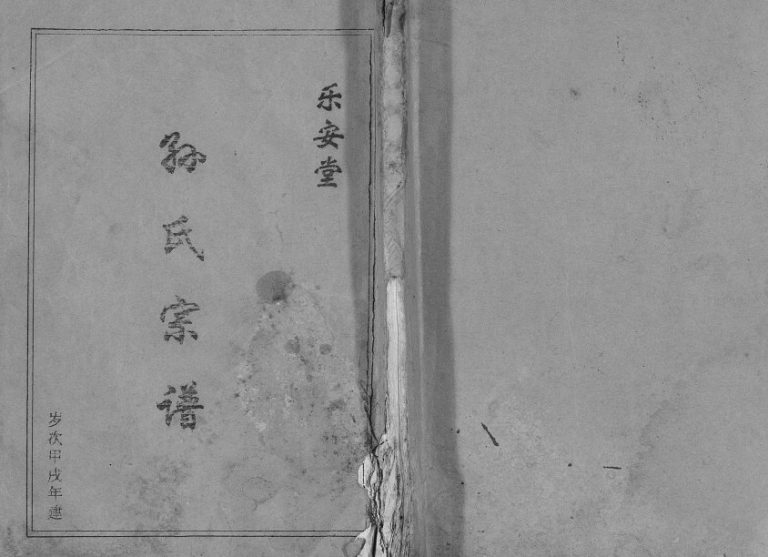 乐安堂
孙氏宗谱
岁次甲戌年